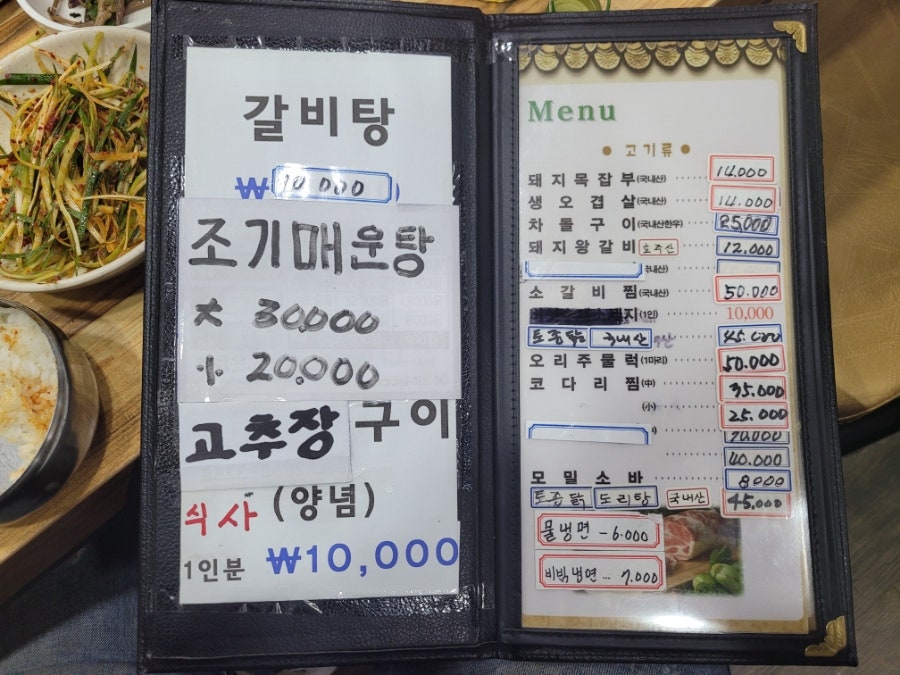 갈비탕
₩10,000
조기매운탕
大 30,000
小 20,000
고추장구이
식사 (양념)
1인분 ₩10,000
Menu
고기류
돼지목잡부(국내산) 14.000
생오겹살(국내산) 14.000
차돌구이(국내산한우) 25,000
돼지왕갈비 호주산 12.000
국내산)
소갈비찜(국내산) 50.000
지(1인) 10,000
토종닭 국내산 45.000
오리주물럭(1마리) 50.000
코다리찜(中) 35.000
(小) 25.000
20.000
40.000
모밀소바 8000
토종닭 도리탕 국내산 45.000
물냉면 - 6.000
비빔냉면 ... 7.000